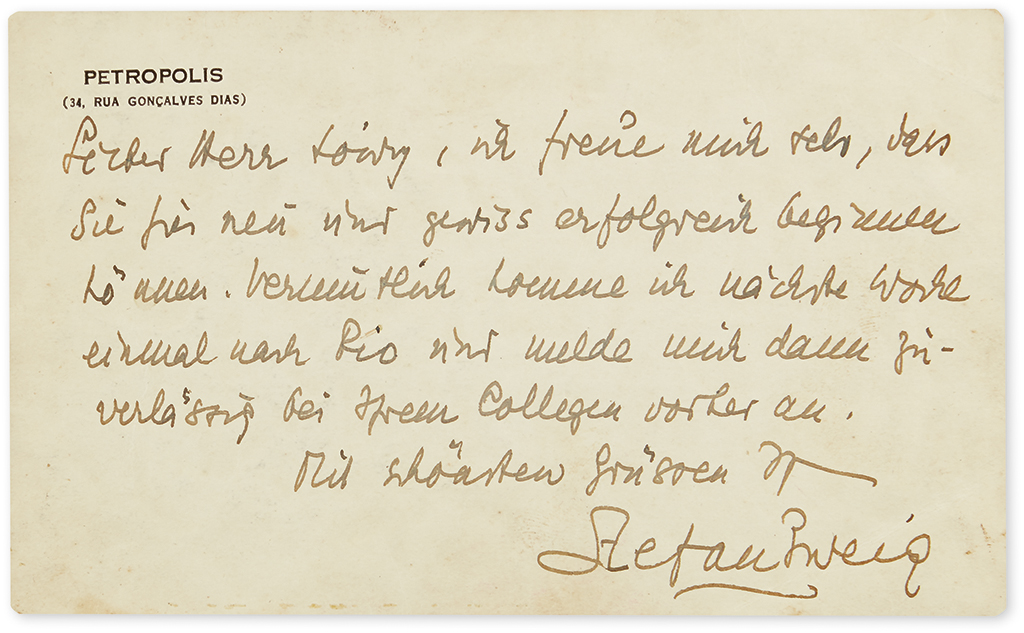 PETROPOLIS
(34, RUA GONÇALVES DIAS)
Lieber Herr Löwy, ich freue mich sehr, dass
Sie hier neu und gewiss erfolgreich beginnen
können. Vermutlich komme ich nächste Woche
einmal nach Rio und melde mich dann zu-
verlässig bei Ihrem Collegen vorher an.
Mit schönsten Grüssen Ihr
Stefan Zweig